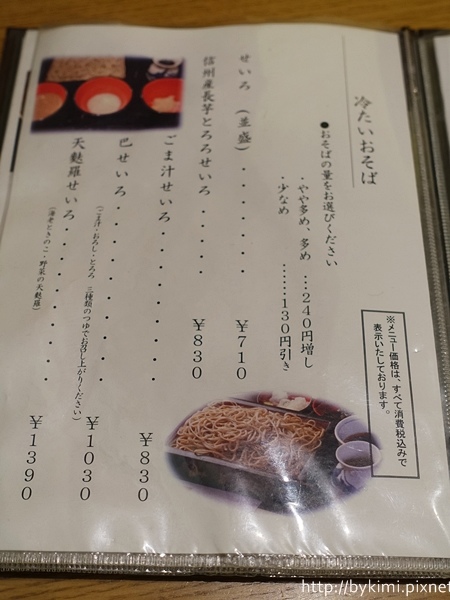 冷たいおそば
●おそばの量をお選びください
・やや多め、多め ……２４０円増し
・少なめ ……１３０円引き
せいろ（並盛）・・・・・・￥７１０
信州産長芋とろろせいろ・・・・￥８３０
ごま汁せいろ・・・・・・・・￥８３０
巴せいろ・・・・・・・・・￥１０３０
（ごま汁・おろし・とろろ 三種類のつゆでお召し上がりください）
天麩羅せいろ・・・・・・・・￥１３９０
（海老ときのこ・野菜の天麩羅）
※メニュー価格は、すべて消費税込みで
表示いたしております。
http://bykimi.pixnet